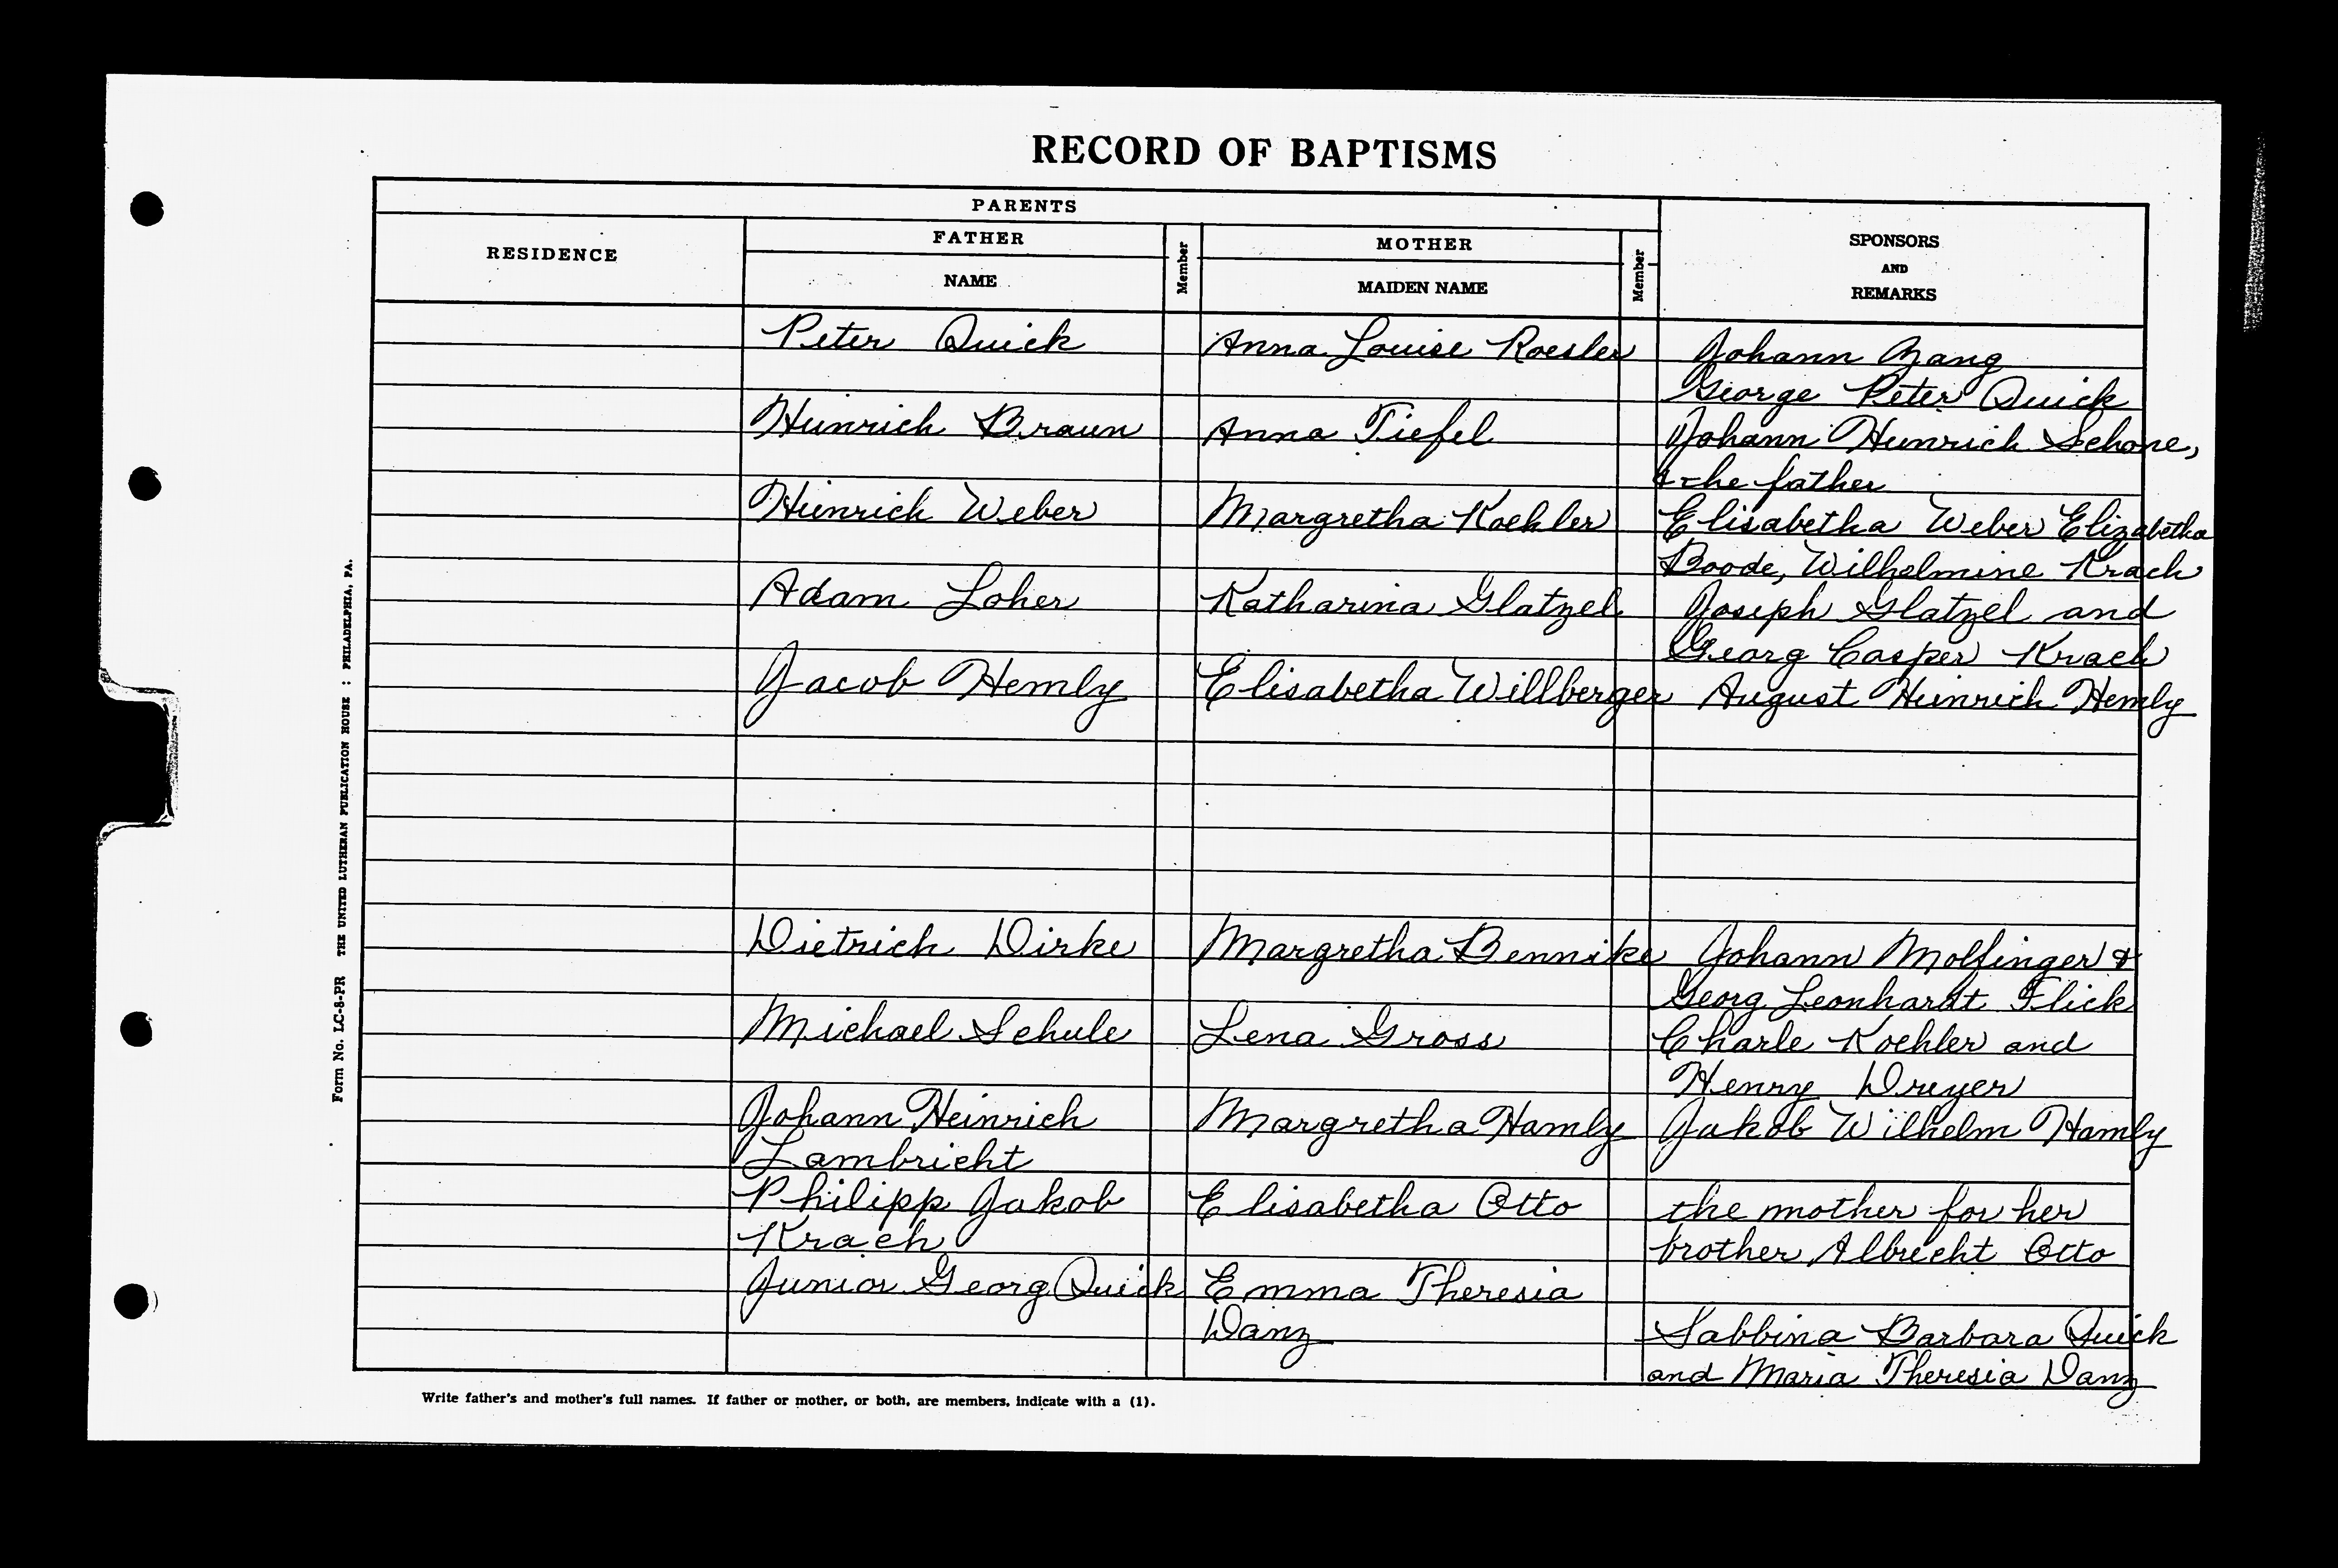 RECORD OF BAPTISMS
PARENTS
RESIDENCE
FATHER
NAME
Member
MOTHER
MAIDEN NAME
Member
SPONSORS
AND
REMARKS
Peter Quick Anna Louise Roesler Johann Zang
George Peter Quick
Heinrich Braun Anna Tiefel Johann Heinrich Schone,
& the father
Heinrich Weber Margretha Koehler Elisabetha Weber Elizabetha
Boode, Wilhelmine Krach
Adam Loher Katharina Glatzel Joseph Glatzel and
Georg Casper Krach
Jacob Hemly Elisabetha Willberger August Heinrich Hemly
Dietrich Dirke Margretha Bennike Johann Molfinger &
Georg Leonhardt Flick
Michael Schule Lena Gross Charle Koehler and
Henry Dreyer
Johann Heinrich Margretha Hamly Jakob Wilhelm Hamly
Lambricht
Philipp Jakob Elisabetha Otto the mother for her
Krach brother Albrecht Otto
Junior Georg Quick Emma Theresia
Danz Sabbina Barbara Quick
and Maria Theresia Danz
Write father's and mother's full names. If father or mother, or both, are members, indicate with a (1).
Form No. LC-8-PR THE UNITED LUTHERAN PUBLICATION HOUSE : PHILADELPHIA, PA.